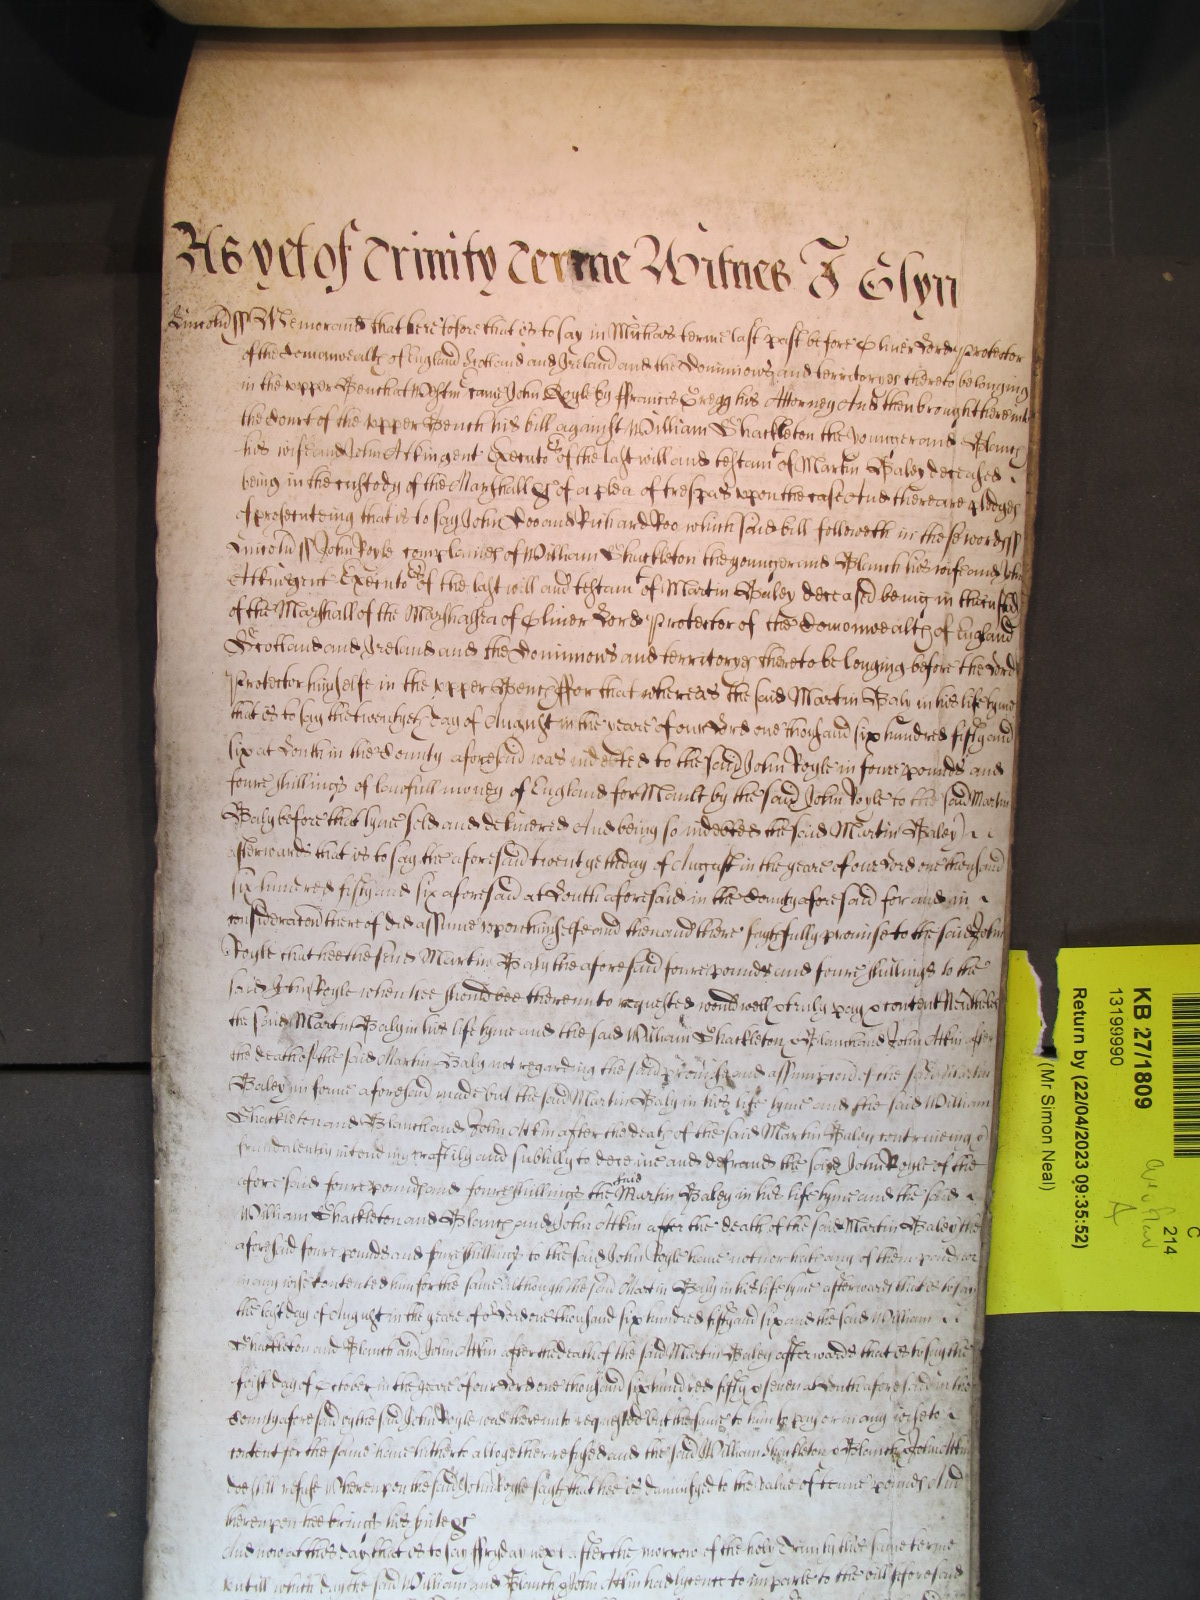 As yet of Trinity Terme Witnes J Glyn
Lincoln ss Memorand that heretofore that is to say in Michas terme last past before Oliver Lord Protector
of the Comonwealth of England Scotland and Ireland and the Dominnions and territoryes thereto belonging
in the upper Bench at Westm came John Royle by Frances Gregg his Attorney And then brought there into
the Court of the upper Bench his bill against William Shackleton the younger and Blanch
his wife and John Atkin gent Executors of the last will and testamt of Martin Baley deceased
being in the custody of the Marshall &c of a plea of trespas upon the case And there are pledges
of prosecuteing that is to say John Doo and Richard Roo which said bill followeth in these words ss
Lincoln ss John Royle complaines of William Shackleton the younger and Blanch his wife and John
Atkin gent Executors of the last will and testamt of Martin Baley deceased being in the custody
of the Marshall of the Marshalsea of Oliver Lord Protector of the Comonwealth of England
Scotland and Ireland and the Dominnions and territoryes thereto belonging before the Lord
Protector himselfe in the upper Bench For that whereas the said Martin Baly in his life tyme
that is to say the twentyeth day of August in the yeare of our Lord one thousand six hundred fifty and
six at Louth in the County aforesaid was indebted to the said John Royle in foure pounds and
foure shillings of lawfull money of England for Mault by the said John Royle to the said Martin
Baly before that tyme sold and delivered And being so indebted the said Martin Baley
afterwards that is to say the aforesaid twentyeth day of August in the yeare of our Lord one thousand
six hundred fifty and six aforesaid at Louth aforesaid in the County aforesaid for and in
consideracon thereof did assume upon himselfe and then and there faythfully promise to the said John
Royle that hee the said Martin Baly the aforesaid foure pounds and foure shillings to the
said John Royle when hee should bee thereunto requested would well & truly pay & content Neverthelesse
the said Martin Baly in his life tyme and the said William Shackleton & Blanch and John Atkin after
the death of the said Martin Baly not regarding the said promise and assumpcion of the said Martin
Baley in forme aforesaid made but the said Martin Baly in his life tyme and the said William
Shackleton and Blanch and John Atkin after the death of the said Martin Baley contriveing &
fraudulently intending craftily and subtilly to deceive and defraud the said John Royle of the
aforesaid foure pounds and foure shillings the said Martin Baley in his life tyme and the said
William Shackleton and Blanch and John Atkin after the death of the said Martin Baley the
aforesaid foure pounds and foure shillings to the said John Royle have not nor hath any of them payd or
in any wise contented him for the same Although the said Martin Baly in his life tyme afterwards that is to say
the last day of August in the yeare of or Lord one thousand six hundred fifty and six and the said William
Shackleton and Blanch and John Atkin after the death of the said Martin Baley afterwards that is to say the
first day of October in the yeare of our Lord one thousand six hundred fifty & seven at Louth aforesaid in the
County aforesaid by the said John Royle was thereunto requested but the same to him to pay or in any wise to
content for the same have hitherto altogether refused and the said William Shackleton & Blanch & John Atkin
doe still refuse Whereupon the said John Royle sayth that hee is damnifyed to the value of tenne pounds And
thereupon hee brings his suite &c
And now at this day that is to say Fryday next after the morrow of the holy Trinity this same terme
untill which day the said William and Blanch & John Atkin had lycence to imparle to the bill aforesaid
KB 27/1809
13199990
Return by (22/04/2023 09:35:52)
(Mr Simon Neal)
C
214
A